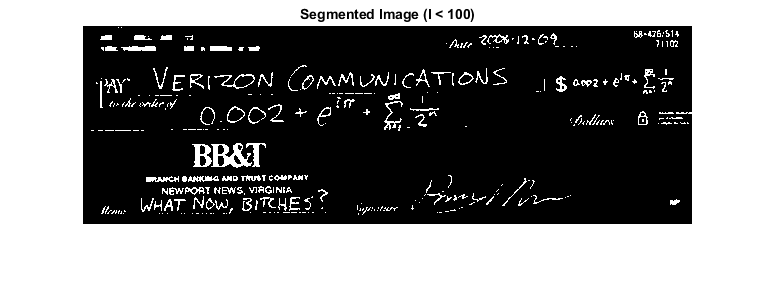 Segmented Image (I < 100)
Date 2006-12-09
68-426/514
71102
PAY VERIZON COMMUNICATIONS $ 0.002 + e^{iπ} + ∑_{n=1}^∞ 1/2^n
to the order of 0.002 + e^{iπ} + ∑_{n=1}^∞ 1/2^n
Dollars
BB&T
BRANCH BANKING AND TRUST COMPANY
NEWPORT NEWS, VIRGINIA
Memo WHAT NOW, BITCHES? Signature
MP